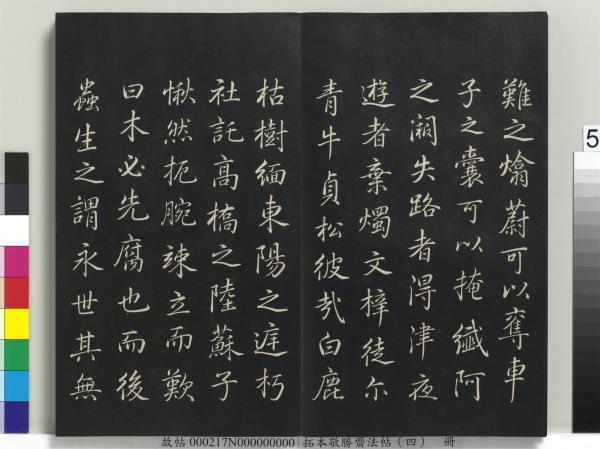 難之熻蔚可以奪車
子之囊可以掩纖阿
之失路者得津夜
遊者棄燭文梓徒尓
青牛貞松彼哉白鹿
枯樹緬東陽之庭朽
社託高槁之陸蘇子
愀然扼腕竦立而歎
曰木必先腐也而後
蟲生之謂永世其無
5
故帖 000217N000000000 拓本敬勝齋法帖（四） 冊